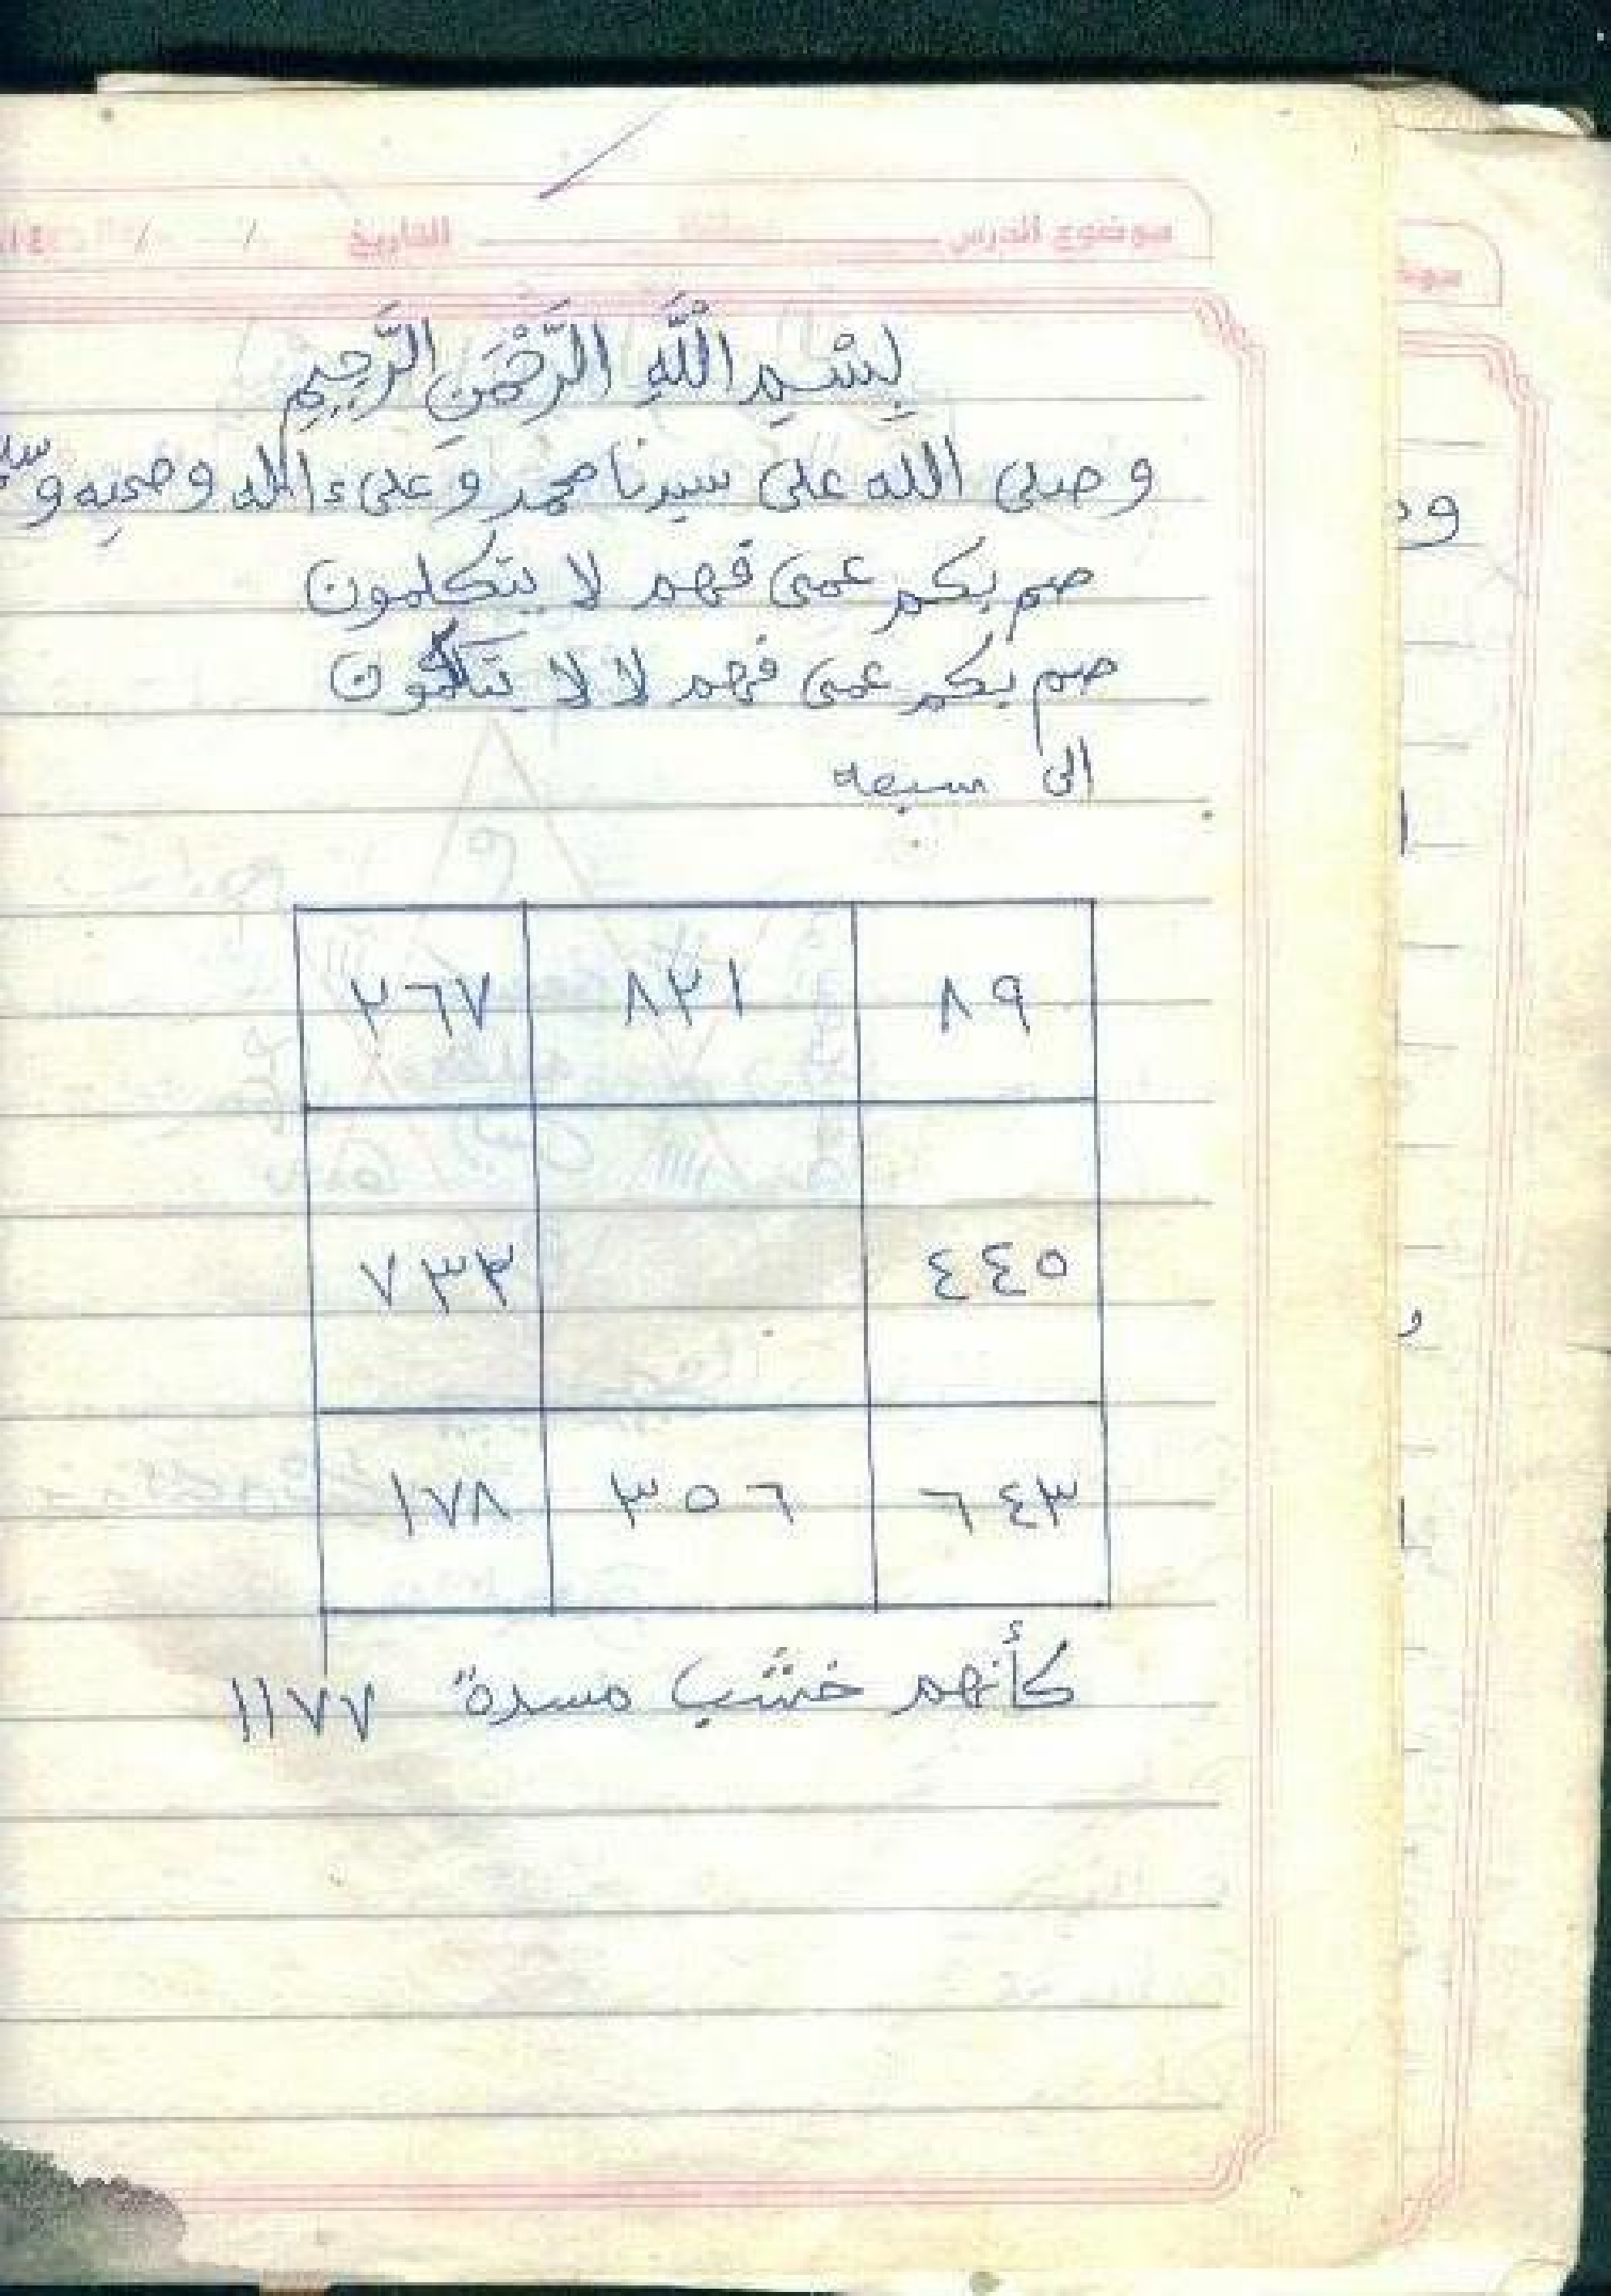 موضوع الدرس التاريخ / /
بِسْمِ اللَّهِ الرَّحْمَنِ الرَّحِيمِ
وصلى الله على سيدنا محمد وعلى ءاله وصحبه و
صم بكم عمى فهم لا يتكلمون
صم بكم عمى فهم لا لا يتكلمون
الى سبعه
٨٩ ٨٢١ ٢٦٧
٤٤٥ ٧٣٣
٦٤٣ ٣٥٦ ١٧٨
كأنهم خشب مسدة ١١٧٧